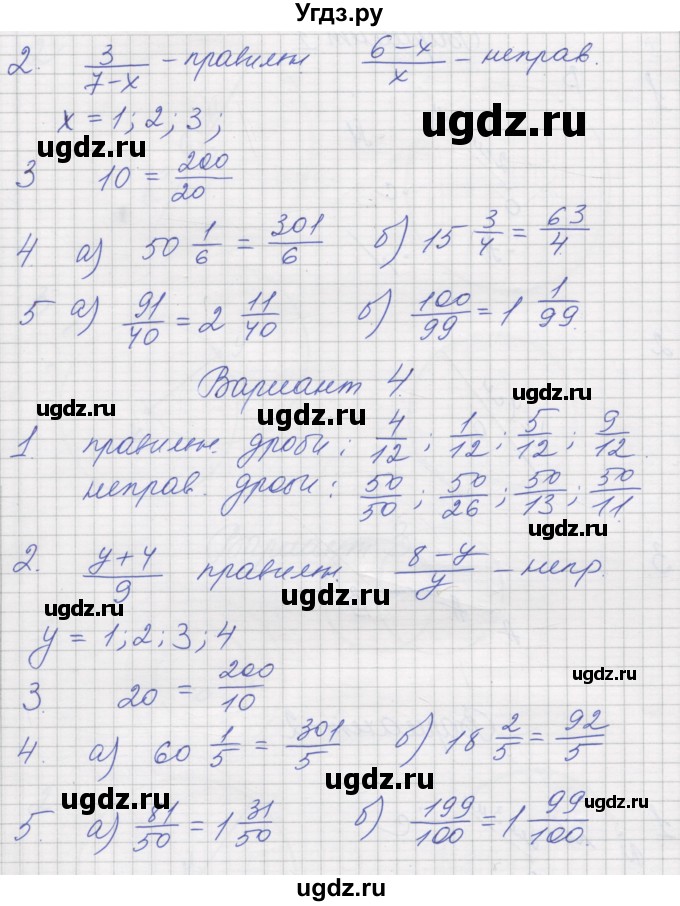 Угдз.ру
2. 3/(7-x) - правильн (6-x)/x - неправ.
x = 1; 2; 3;
ugdz.ru ugdz.ru
3 10 = 200/20
ugdz.ru
4 а) 50 1/6 = 301/6 б) 15 3/4 = 63/4
ugdz.ru ugdz.ru
5 а) 91/40 = 2 11/40 б) 100/99 = 1 1/99
ugdz.ru
Вариант 4.
ugdz.ru ugdz.ru ugdz.ru
1 правильн. дроби: 4/12; 1/12; 5/12; 9/12.
неправ. дроби: 50/50; 50/26; 50/13; 50/11
ugdz.ru ugdz.ru
2. (y+4)/9 правильн. (8-y)/y - непр.
ugdz.ru ugdz.ru
y = 1; 2; 3; 4
ugdz.ru
3. 20 = 200/10
ugdz.ru
4. а) 60 1/5 = 301/5 б) 18 2/5 = 92/5
ugdz.ru ugdz.ru
5. а) 81/50 = 1 31/50 б) 199/100 = 1 99/100.
ugdz.ru ugdz.ru ugdz.ru
ugdz.ru